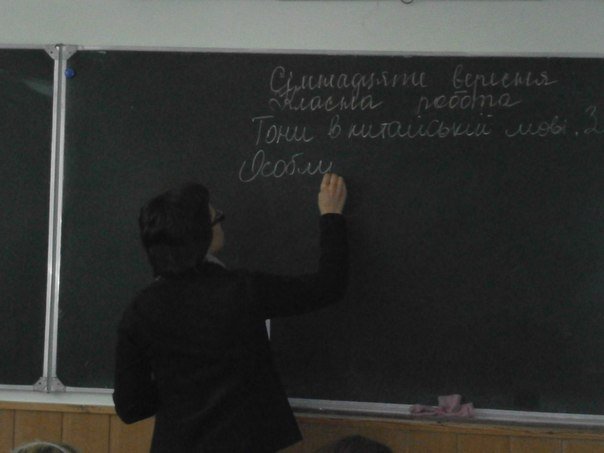 Сімнадцяте вересня
Класна робота
Тони в китайській мові. З
Особли